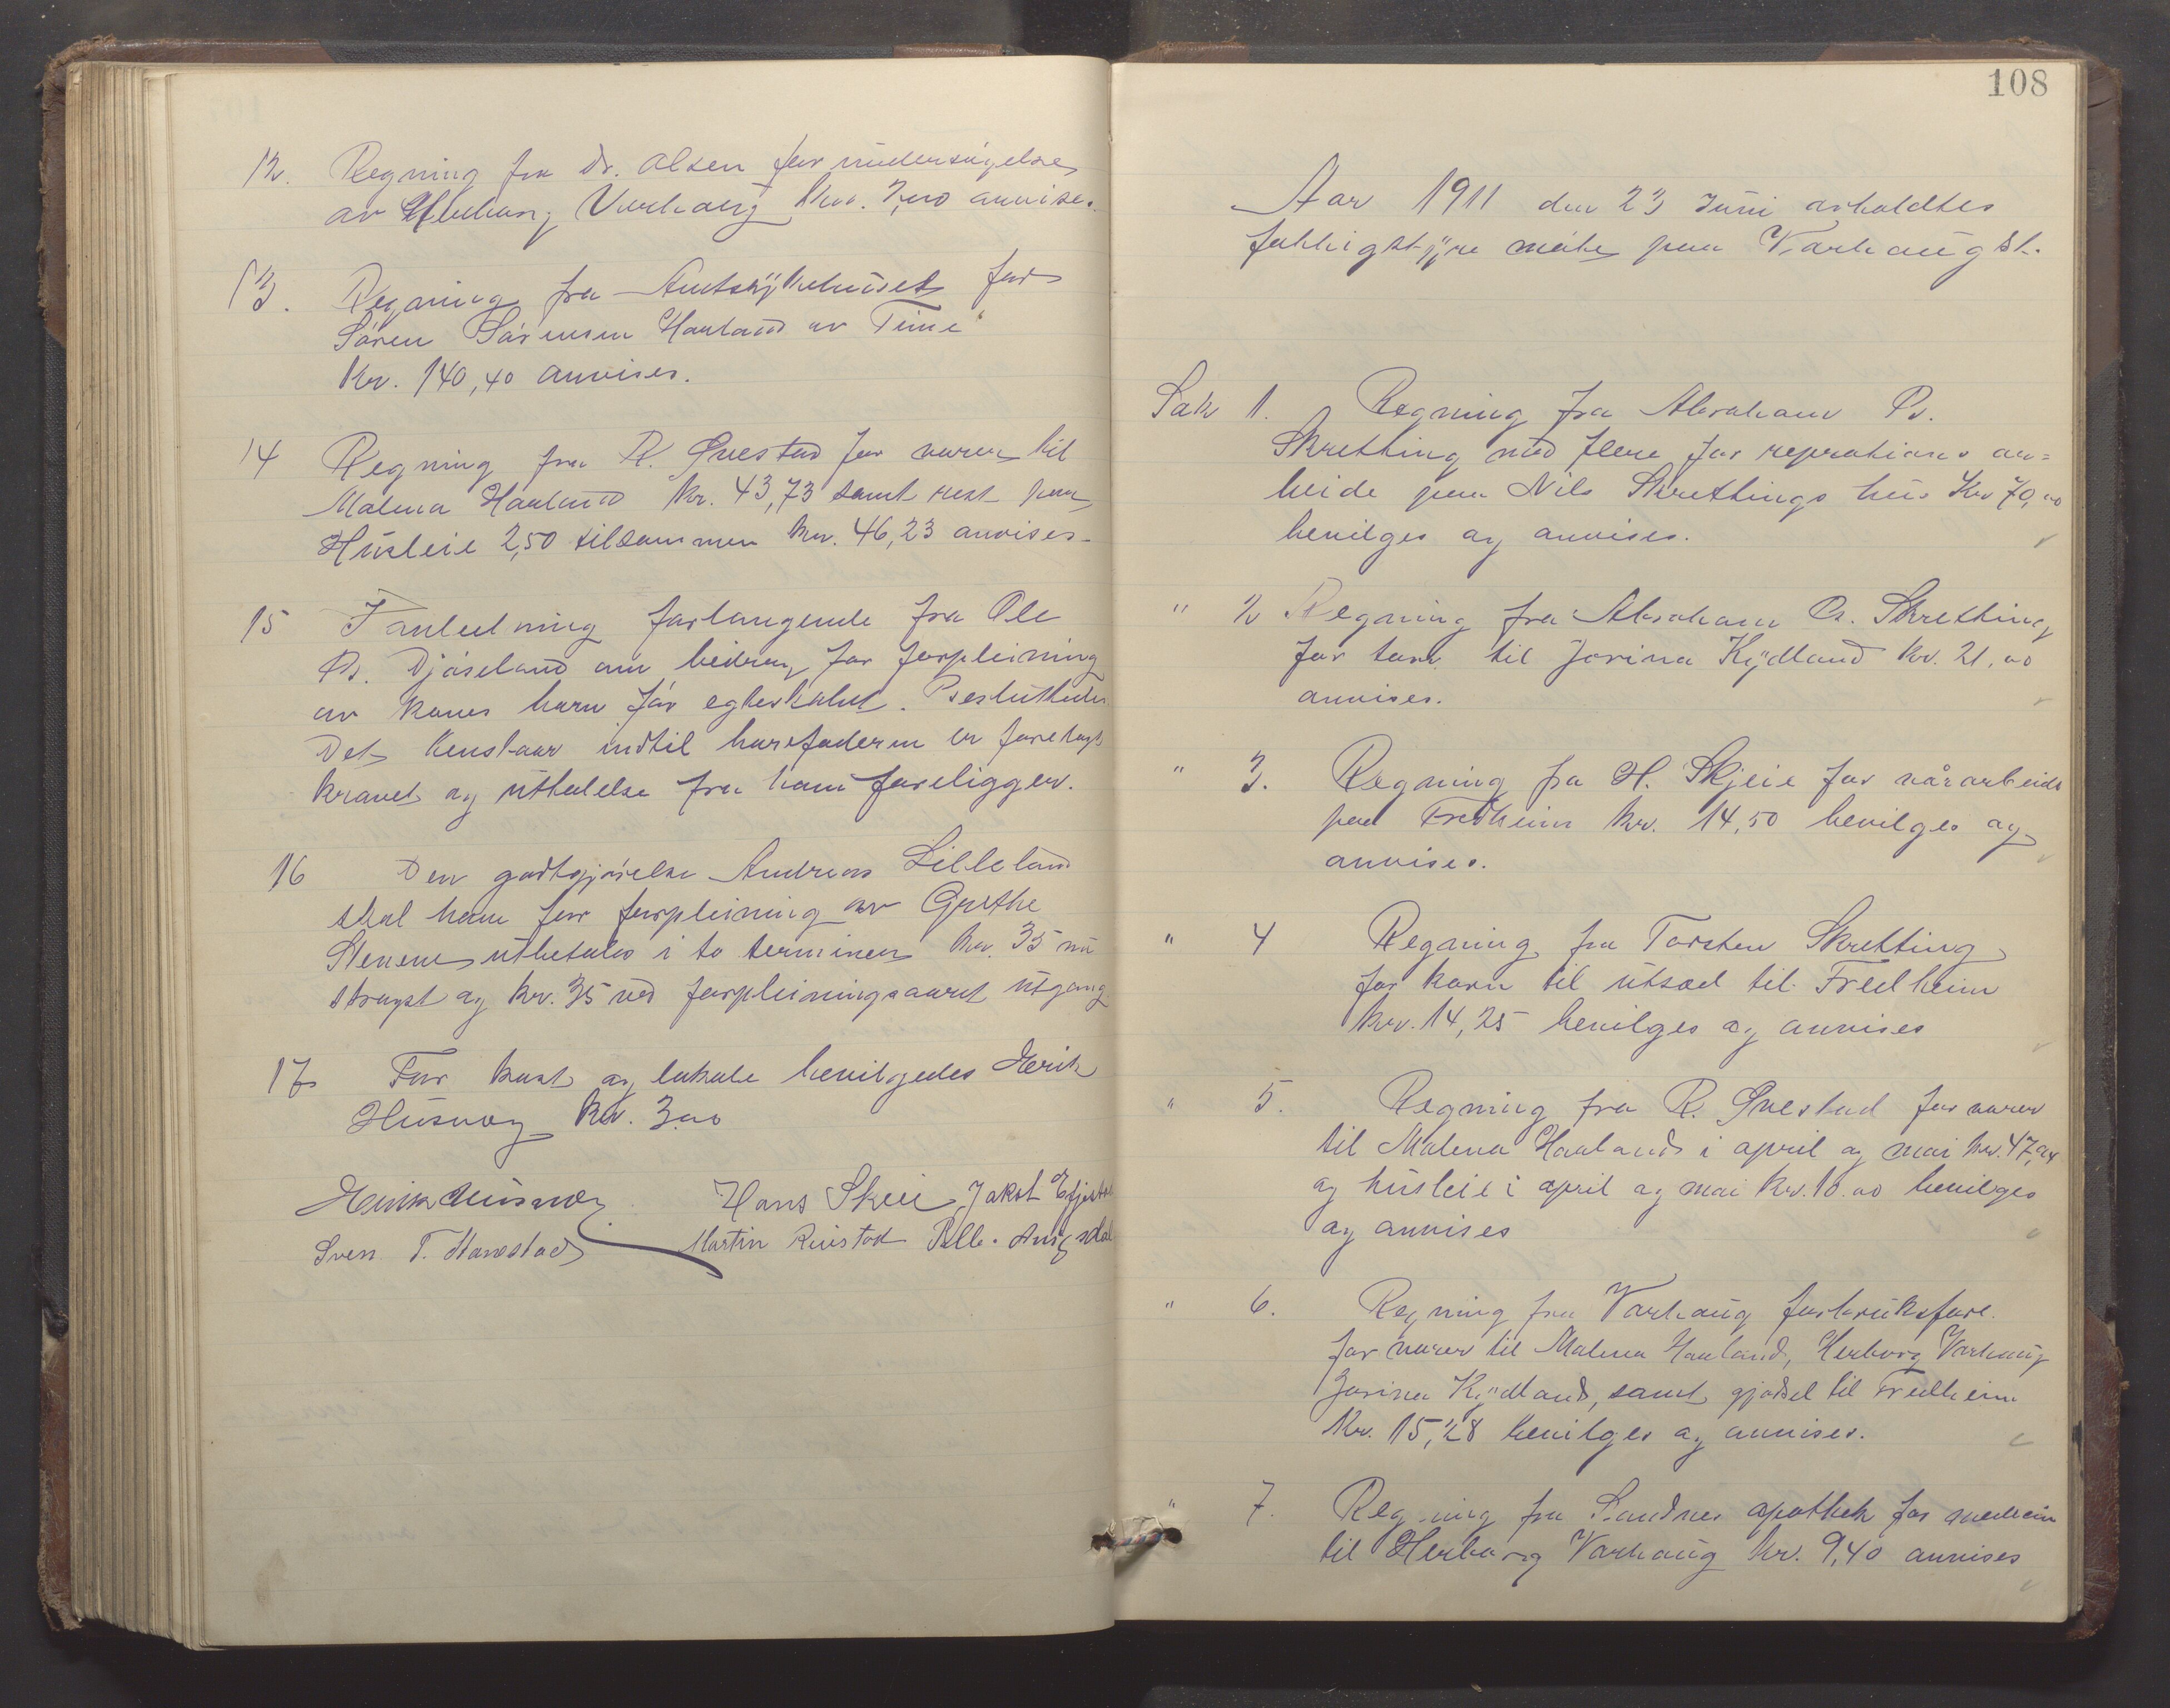 12. Regning fra Dr. Olsen for undersøgelse
av Herborg Varhaug Kr. 2,00 anvises.
13. Regning fra Amtsykehuset for
Søren Sørensen Haaland av Time
Kr. 140,40 anvises.
14 Regning fra R. Qvestad for varer til
Malena Haaland Kr. 43,73 samt rest paa
Husleie 2,50 tilsammen Kr. 46,23 anvises.
15 I anledning forlangende fra Ole
Djøseland om bidrag for forpleining
av kones barn før egteskabet. Besluttedes
Det henstaar indtil barnefaderen er forelagt
kravet og uttalelse fra ham foreligger.
16 Den godtgjørelse Andreas Lilleland
skal have for forpleining av Grethe
Stenene utbetales i to terminer Kr. 35 nu
straxst og Kr. 35 ved forpleiningsaaret utgang
17 For kost og lokale bevilgedes Henrik
Husvæg Kr. 3.00
Henrik Husvæg Hans Skeie Jakob Efjestad
Sven T. Hanestad Martin Ruistad Pelle Aniksdal
108
Aar 1911 den 23 Juni avholdtes
fattigstyre møte paa Varhaug St.
Sak 1. Regning fra Abraham B.
Skretting med flere for reprations ar=
beide paa Nils Skrettings hus Kr 70,00
bevilges og anvises.
" 2 Regning fra Abraham B. Skretting
for torv til Jorina Kydland Kr. 21.00
anvises.
" 3. Regning fra H. Skjeie for vårarbeide
paa Fredheim Kr. 14,50 bevilges og
anvises.
" 4 Regning fra Torsten Skretting
for korn til utsæd til Fredheim
Kr. 14,25 bevilges og anvises
" 5. Regning fra R. Qvestad for varer
til Malena Haaland i april og mai kr. 47,94
og husleie i april og mai Kr. 10.00 bevilges
og anvises
" 6. Regning fra Varhaug forbruksfore.
for varer til Malena Haaland, Herborg Varhaug
Jorina Kydland, samt gjødsel til Fredheim
Kr. 15,28 bevilges og anvises.
" 7. Regning fra Sandnes apothek for medicin
til Herborg Varhaug Kr. 9,40 anvises